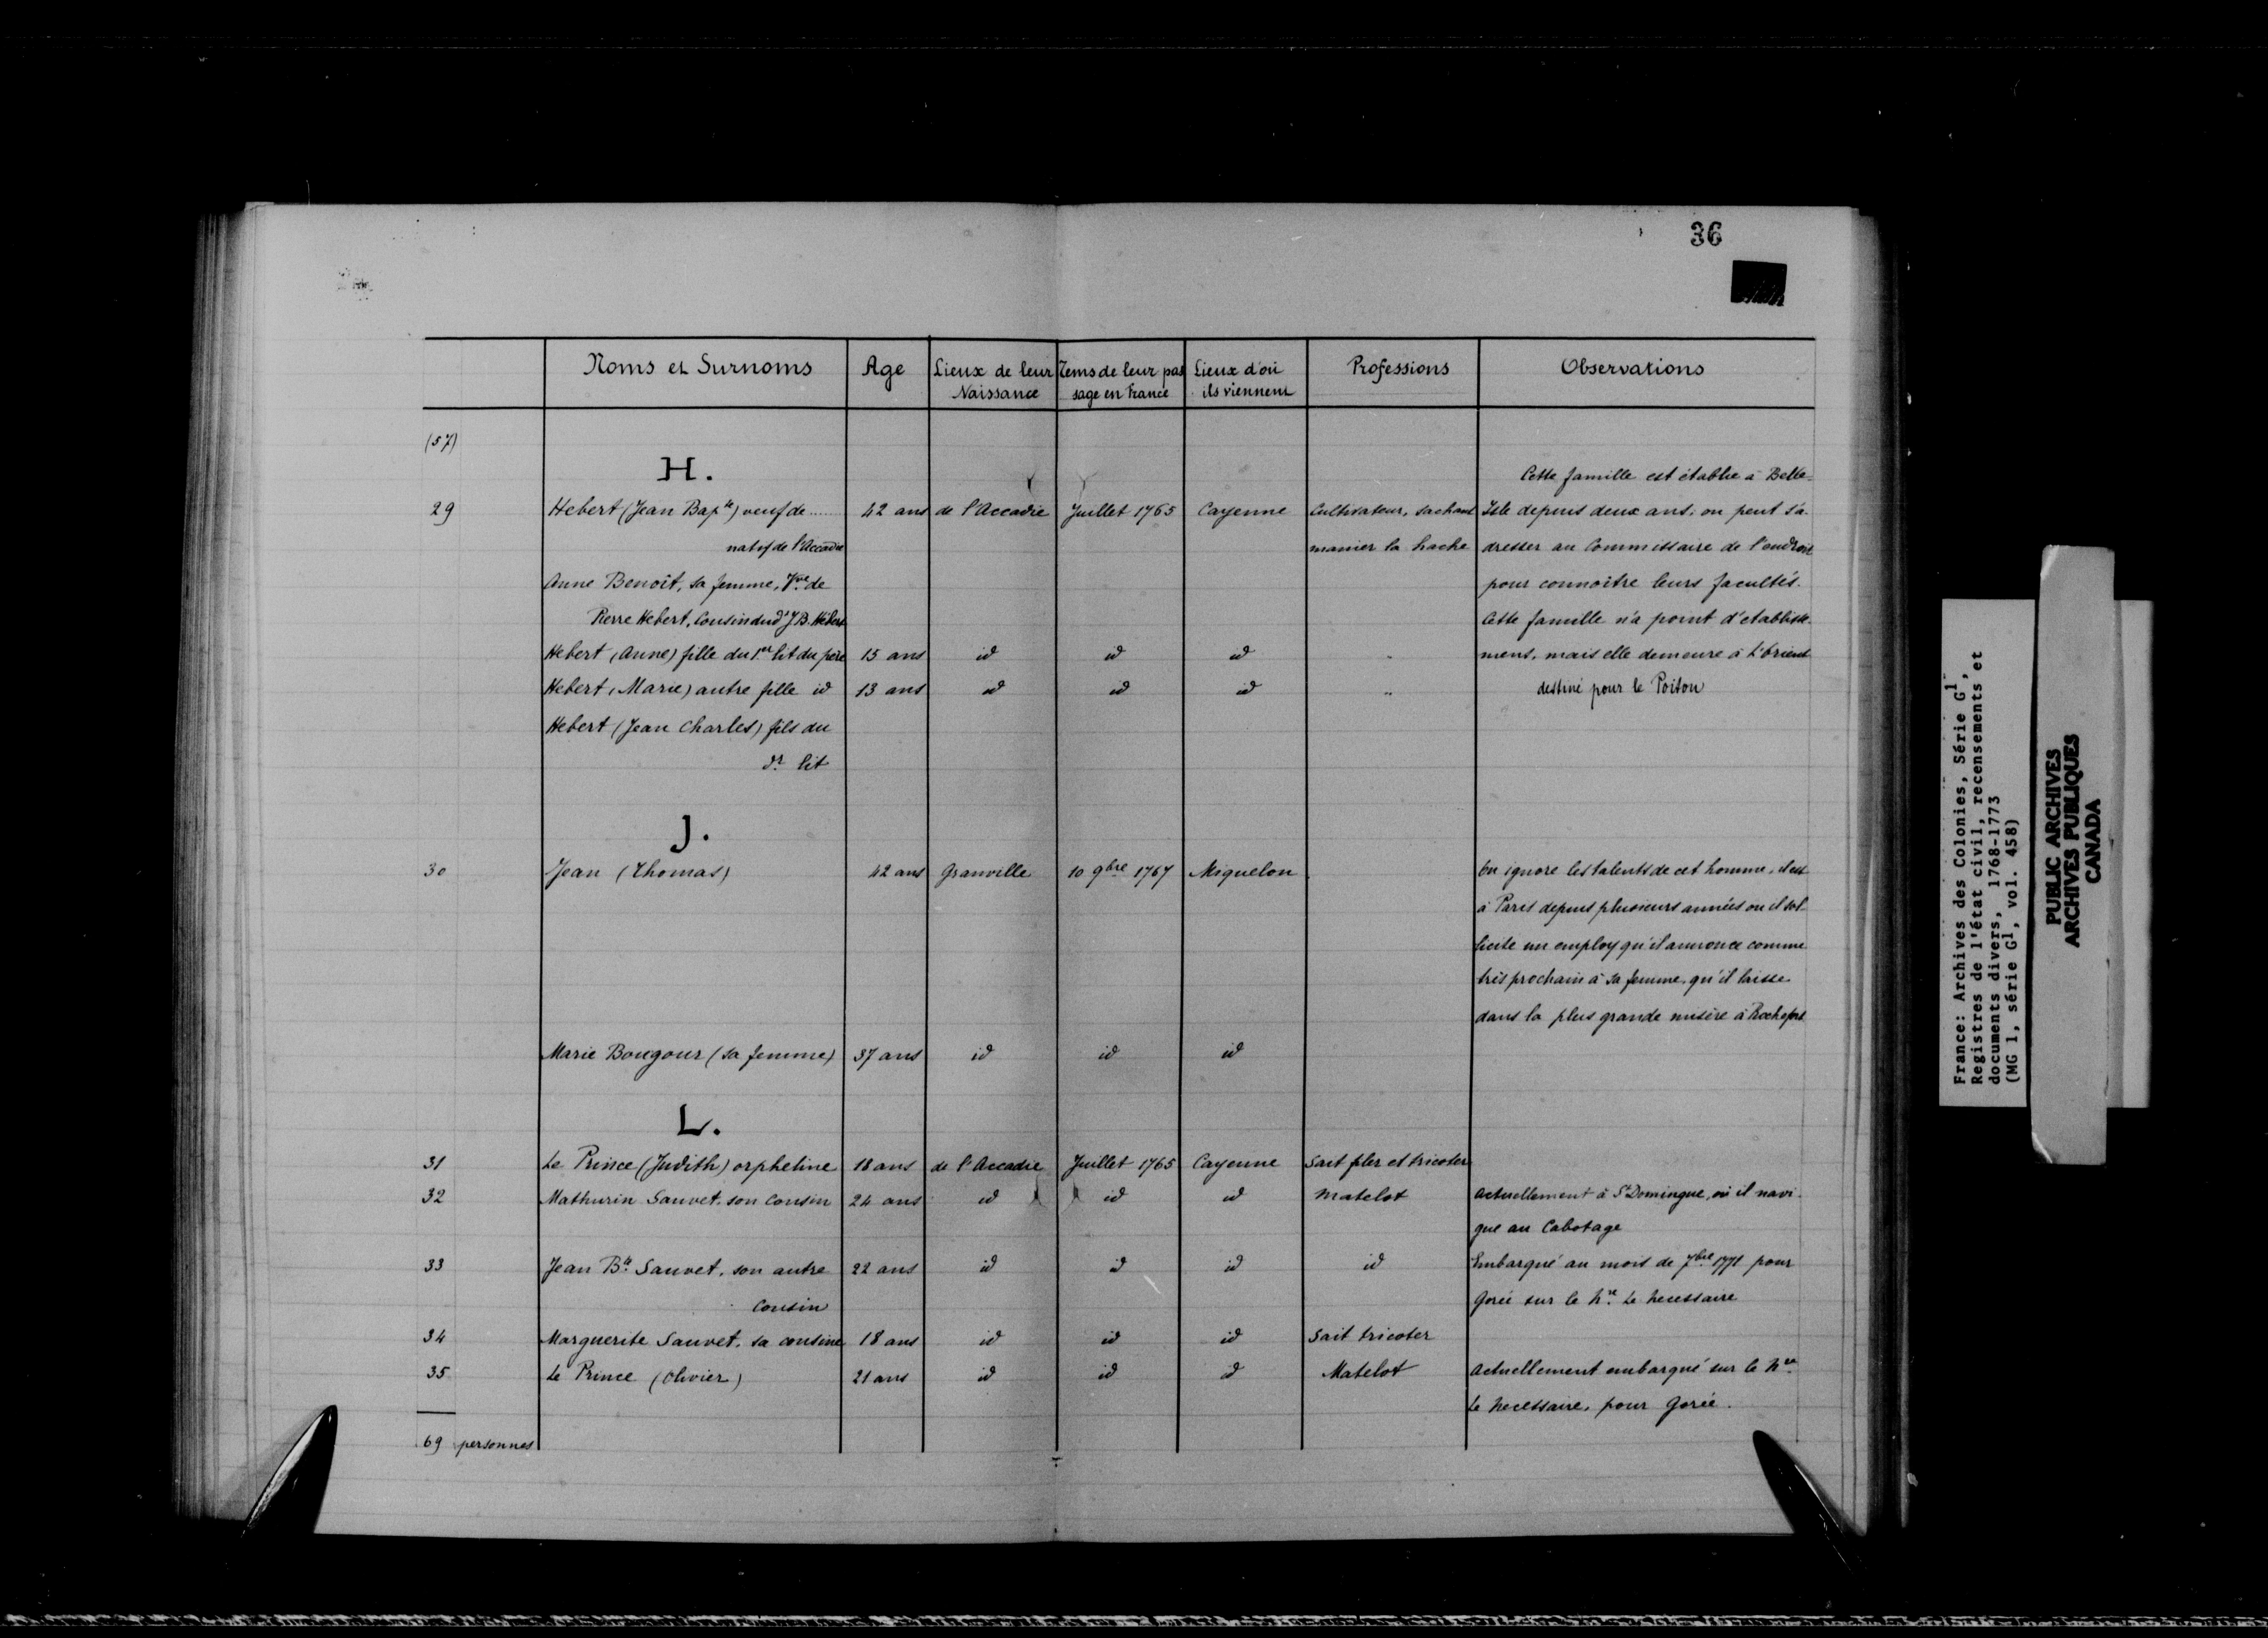 36
Noms et Surnoms | Age | Lieux de leur Naissance | Tems de leur passage en France | Lieux d'où ils viennent | Professions | Observations
(57)
H.
Cette famille est établie à Belle-
29 Hebert (Jean Bapte) veuf de ...... 42 ans de l'Accadie Juillet 1765 Cayenne Cultivateur, sachant Isle depuis deux ans, on peut s'a-
natif de l'Accadie manier la hache dresser au Commissaire de l'endroit
Anne Benoit, sa femme, Vve de pour connoître leurs facultés.
Pierre Hebert, Cousin dud. J B. Hébert Cette famille n'a point d'etablisse-
Hebert (Anne) fille du 1er lit du père 15 ans id id id " ment, mais elle demeure à L'Orient
Hebert (Marie) autre fille id 13 ans id id id " destiné pour le Poitou
Hebert (Jean Charles) fils du
dr. lit
J.
30 Jean (Thomas) 42 ans Granville 10 9bre 1767 Miquelon On ignore les talents de cet homme, il est
à Paris depuis plusieurs années ou il sol-
licite un employ qu'il annonce comme
très prochain à sa femme, qu'il laisse
dans la plus grande misère à Rochefort
Marie Bougour (sa femme) 37 ans id id id
L.
31 Le Prince (Judith) orpheline 18 ans de l'Accadie Juillet 1765 Cayenne Sait filer et tricoter
32 Mathurin Sauvet, son cousin 24 ans id id id Matelot Actuellement à St Domingue, où il navi-
gue au Cabotage
33 Jean Bte Sauvet, son autre 22 ans id id id id Embarqué au mois de 7bre 1771 pour
Cousin Gorée sur le Nre Le Necessaire
34 Marguerite Sauvet, sa cousine 18 ans id id id Sait tricoter
35 Le Prince (Olivier) 21 ans id id id Matelot Actuellement embarqué sur le Nre
Le Necessaire, pour Gorée.
69 personnes
France: Archives des Colonies, Série G1,
Registres de l'état civil, recensements et
documents divers, 1768-1773
(MG 1, série G1, vol. 458)
PUBLIC ARCHIVES
ARCHIVES PUBLIQUES
CANADA